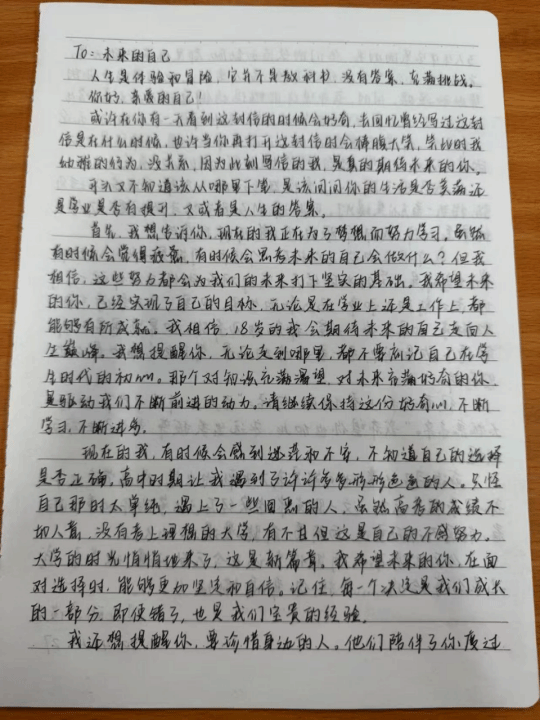 To: 未来的自己
人生是体验和冒险,它并不是教科书,没有答案,充满挑战。
你好,亲爱的自己!
或许在你有一天看到这封信的时候会好奇,去回忆曾经写过这封
信是在什么时候,也许当你再打开这封信时会捧腹大笑,笑此时我
幼稚的行为,没关系,因为此刻写信的我,是真的期待未来的你。
可我又不知道该从哪里下笔,是该问问你的生活是否美满还
是学业是否有提升,又或者是人生的答案。
首先,我想告诉你,现在的我正在为了梦想而努力学习。虽然
有时候会觉得疲惫,有时候会思考未来的自己会做什么?但我
相信,这些努力都会为我们的未来打下坚实的基础。我希望未来
的你,已经实现了自己的目标,无论是在学业上还是工作上,都
能够有所成就。我相信,18岁的我会期待未来的自己走向人
生巅峰。我想提醒你,无论走到哪里,都不要忘记自己在学
生时代的初心。那个对知识充满渴望,对未来充满好奇的你,
是驱动我们不断前进的动力。请继续保持这份好奇心,不断
学习,不断进步。
现在的我,有时候会感到迷茫和不安,不知道自己的选择
是否正确,高中时期让我遇到了许许多多形形色色的人。只怪
自己那时太单纯,遇上了一些回忠的人,虽然高考的成绩不
切人意,没有考上理想的大学,有不甘但这是自己的不够努力。
大学的时光悄悄地来了,这是新篇章,我希望未来的你,在面
对选择时,能够更加坚定和自信。记住,每一个决定是我们成长
的一部分,即使错了,也是我们宝贵的经验。
我还想提醒你,要珍惜身边的人。他们陪伴了你度过